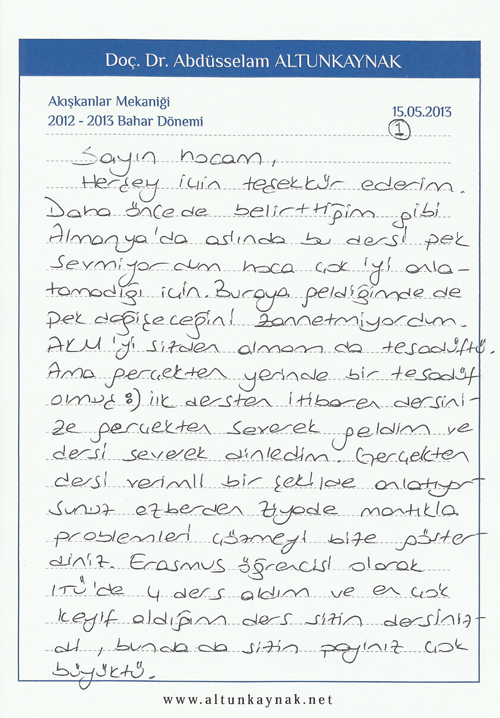 Doç. Dr. Abdüsselam ALTUNKAYNAK
Akışkanlar Mekaniği
15.05.2013
2012 - 2013 Bahar Dönemi
1
Sayın hocam,
Herşey için teşekkür ederim.
Daha önce de belirttiğim gibi
Almanya'da aslında bu dersi pek
sevmiyordum hoca çok iyi anla-
tamadığı için. Buraya geldiğimde de
pek değişeceğini zannetmiyordum.
AKM'yi sizden almam da tesadüftü.
Ama gerçekten yerinde bir tesadüf
olmuş :) İlk dersten itibaren dersini-
ze gerçekten severek geldim ve
dersi severek dinledim. Gerçekten
dersi verimli bir şekilde anlatıyor-
sunuz ezberden ziyade mantıkla
problemleri çözmeyi bize göster-
diniz. Erasmus öğrencisi olarak
İTÜ'de 4 ders aldım ve en çok
keyif aldığım ders sizin dersiniz-
di, bunda da sizin payınız çok
büyüktü.
www.altunkaynak.net